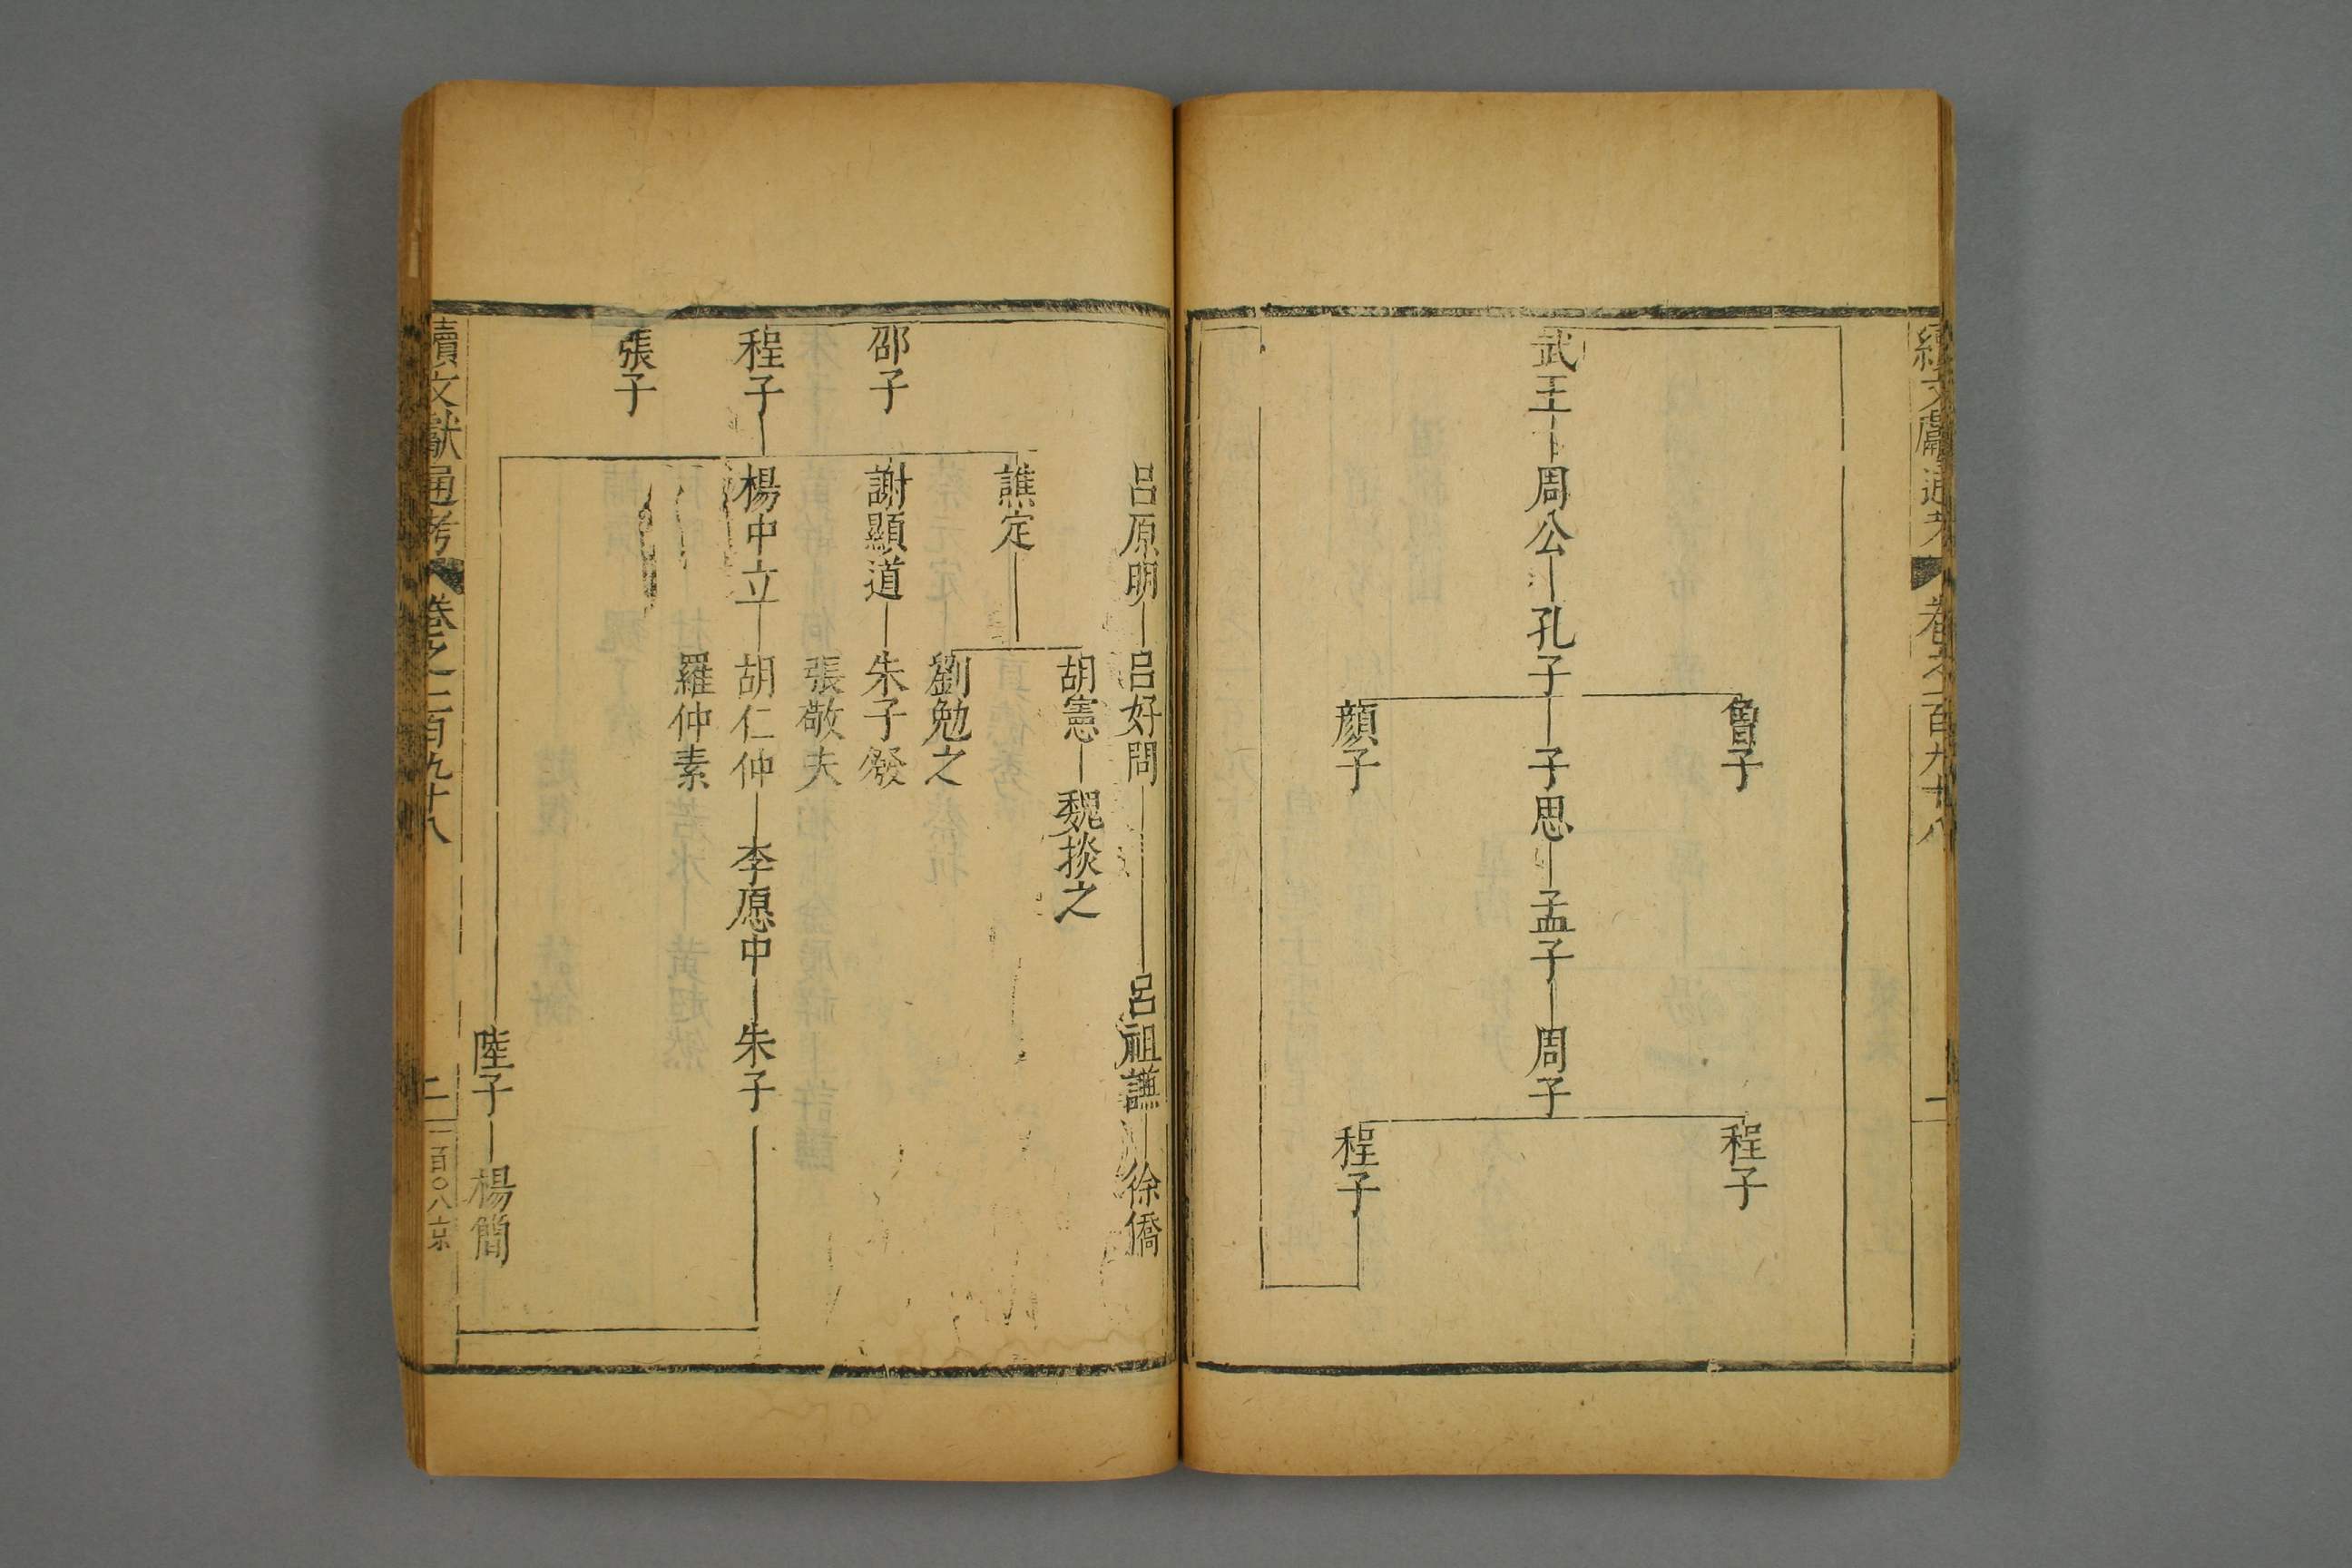 續文獻通考
卷之一百九十八
一
武王
周公
孔子
曾子
子思
顏子
孟子
周子
程子
程子
呂原明
呂好問
呂祖謙
徐僑
胡憲
魏掞之
譙定
劉勉之
邵子
謝顯道
朱子發
張敬夫
程子
楊中立
胡仁仲
李愿中
朱子
羅仲素
張子
陸子
楊簡
續文獻通考
卷之一百九十八
二
一百〇八